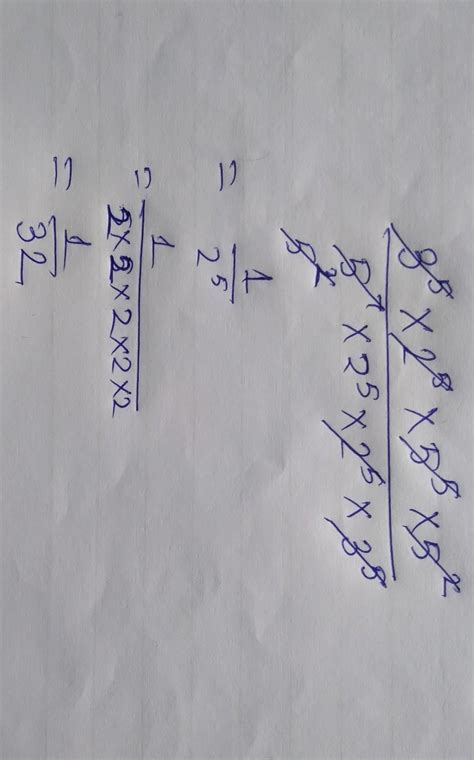 3⁵ × 2⁵ × 5⁵ × 5²
5⁷ × 2⁵ × 2⁵ × 3⁵
5²
= 1
2⁵
= 1
2 × 2 × 2 × 2 × 2
= 1
32